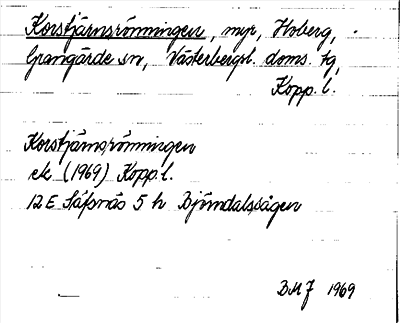 Korstjärnsrönningen, myr, Hoberg,
Grangärde sn, Västerbergsl. doms. tg,
Kopp. l.
Korstjärnsrönningen
ek (1969) Kopp. l.
12 E Säfsnäs 5 h Björndalssågen
BMJ 1969